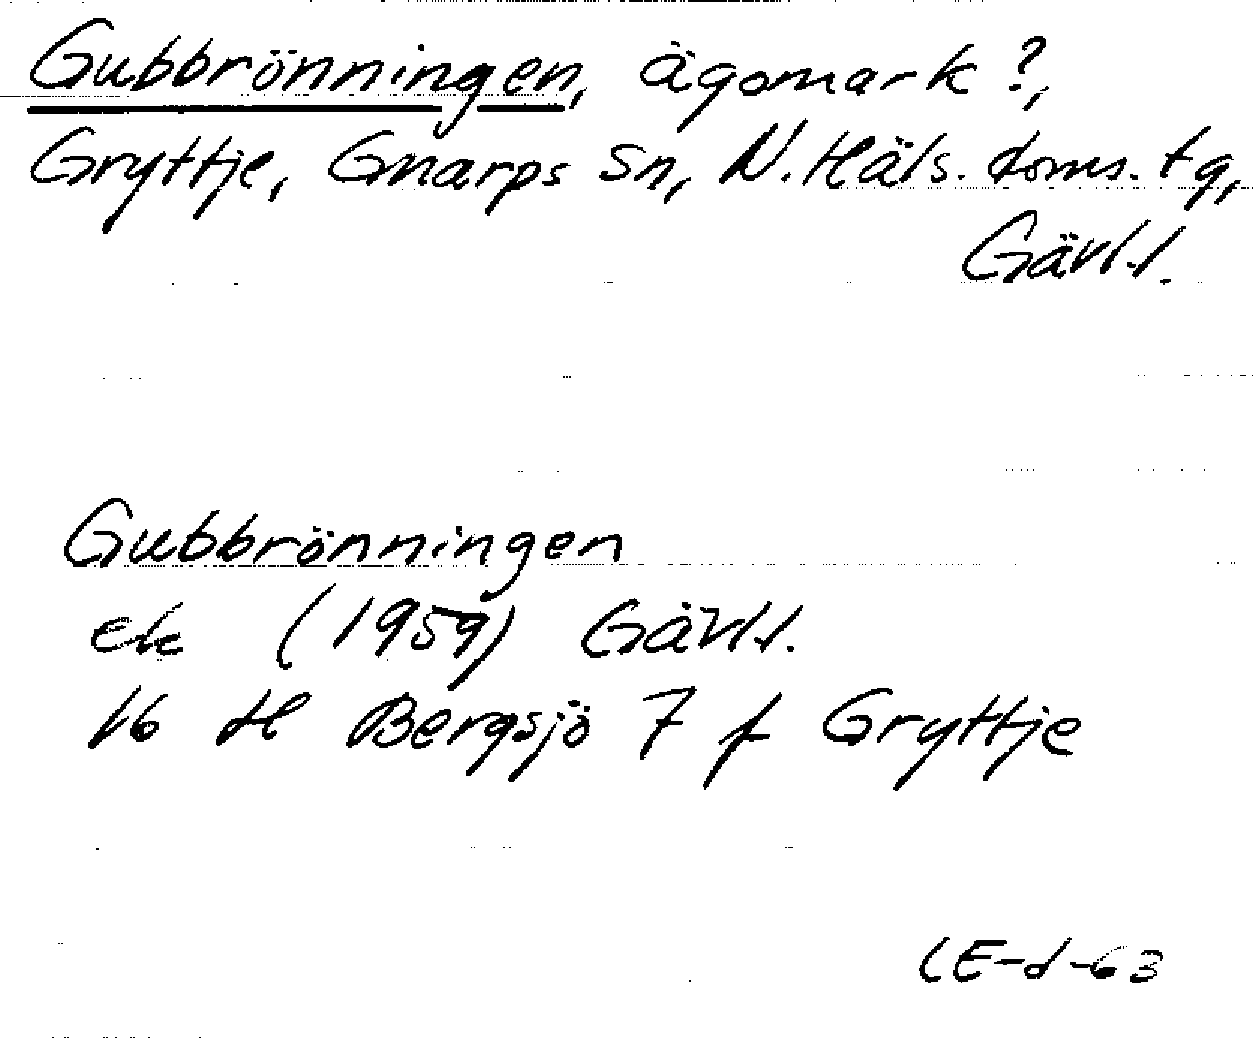 Gubbrönningen, ägomark?,
Gryttje, Gnarps sn, N. Häls. doms. tg,
Gävl.l.
Gubbrönningen
ek (1959) Gävl.l.
16 H Bergsjö 7 f Gryttje
CE-d-63